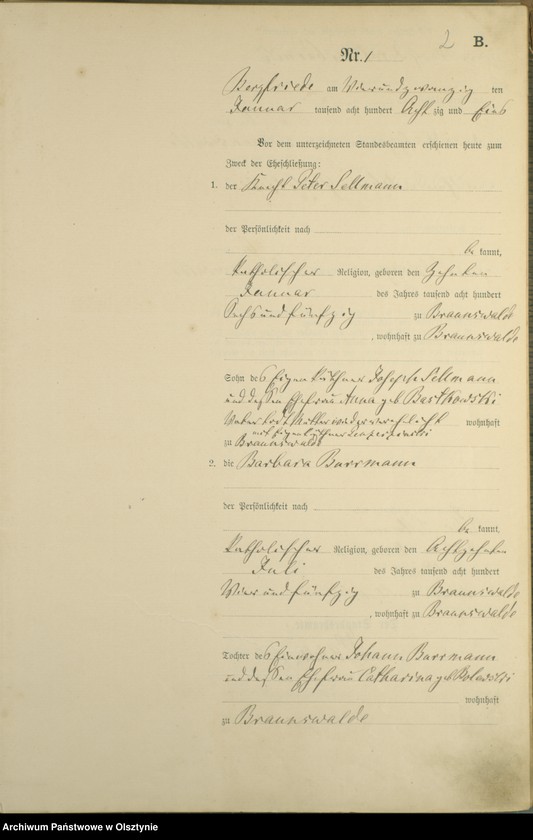 2 B.
Nr. 1
Bergfriede am Vierundzwanzig ten
Januar tausend acht hundert Acht zig und Eins
Vor dem unterzeichneten Standesbeamten erschienen heute zum
Zweck der Eheschließung:
1. der Knecht Peter Sellmann
der Persönlichkeit nach
be kannt,
katholischer Religion, geboren den Zehnten
Januar des Jahres tausend acht hundert
Sechs und fünfzig zu Braunswalde
, wohnhaft zu Braunswalde
Sohn des Eigenkäthner Joseph Sellmann
und dessen Ehefrau Anna geb Bastkowski
Vater todt Mutter wiederverehelicht wohnhaft
mit Eigenkäthner
zu Braunswalde
2. die Barbara Burrmann
der Persönlichkeit nach
be kannt,
katholischer Religion, geboren den Achtzehnten
Juli des Jahres tausend acht hundert
Vier und fünfzig zu Braunswalde
, wohnhaft zu Braunswalde
Tochter des Einwohner Johann Burrmann
und dessen Ehefrau Catharina geb
wohnhaft
zu Braunswalde
Archiwum Państwowe w Olsztynie